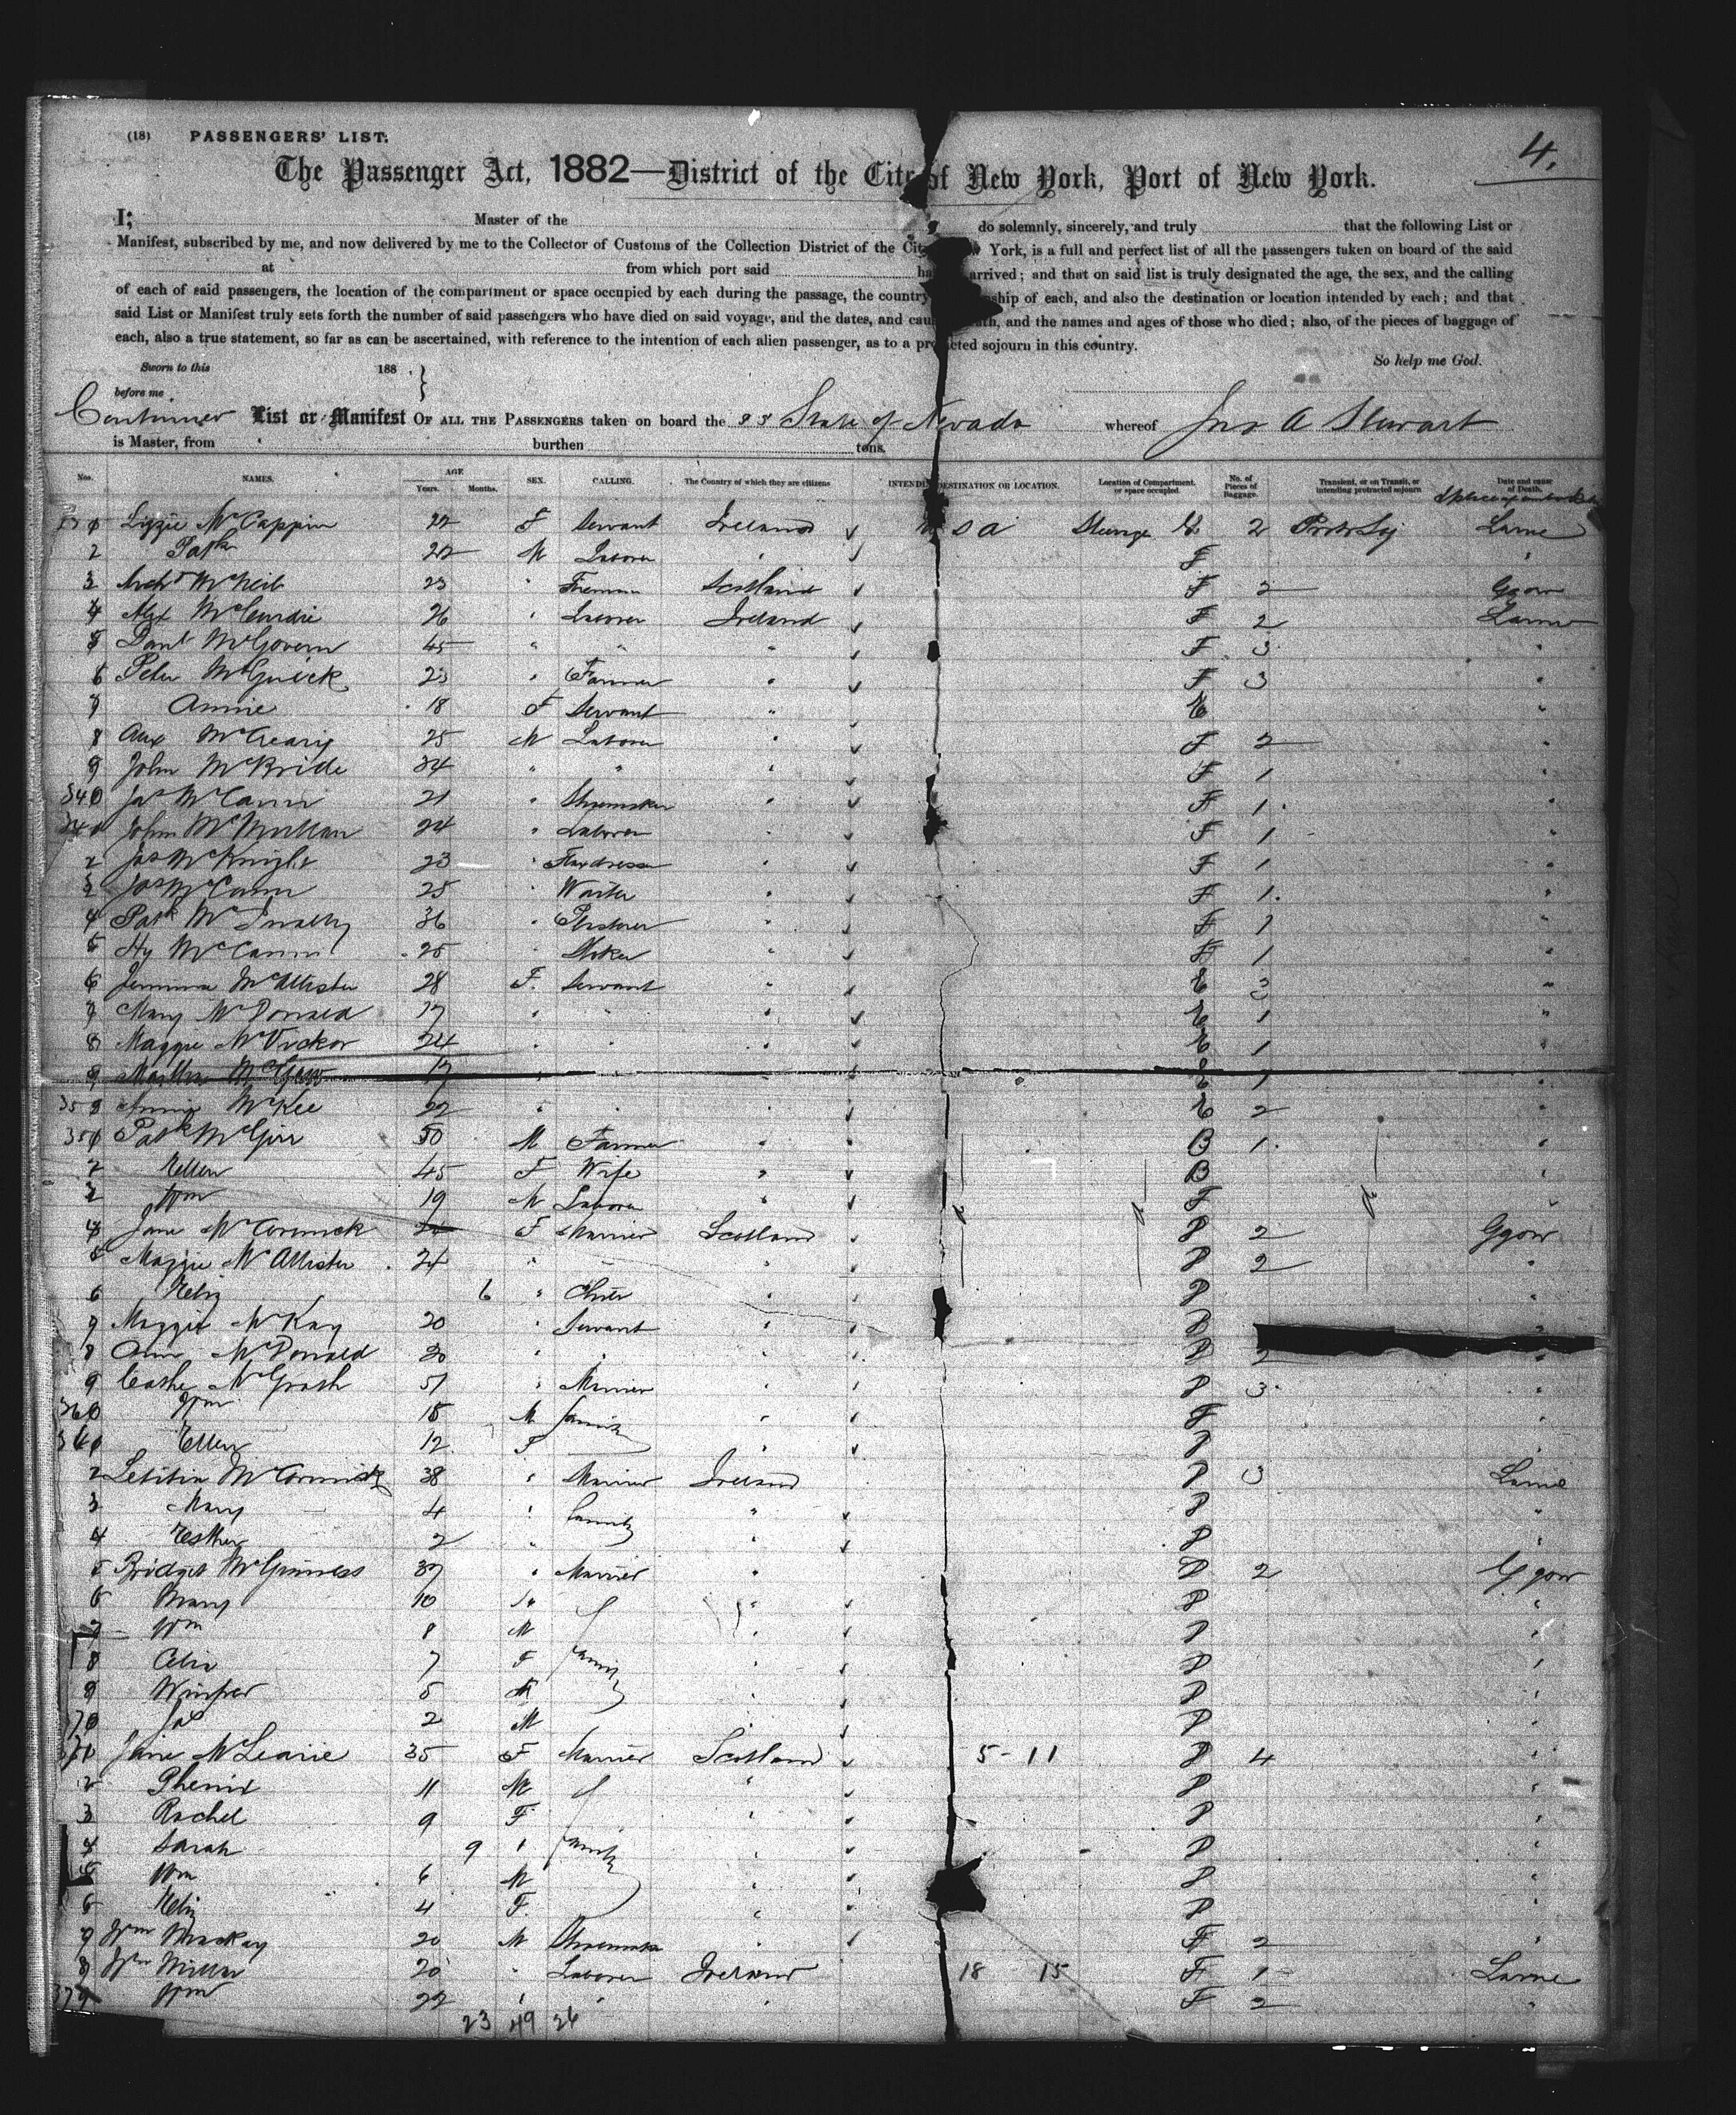 (18) PASSENGERS' LIST.
4.
The Passenger Act, 1882—District of the City of New York, Port of New York.
I, Master of the do solemnly, sincerely, and truly that the following List or
Manifest, subscribed by me, and now delivered by me to the Collector of Customs of the Collection District of the City York, is a full and perfect list of all the passengers taken on board of the said
at from which port said ha arrived; and that on said list is truly designated the age, the sex, and the calling
of each of said passengers, the location of the compartment or space occupied by each during the passage, the country ship of each, and also the destination or location intended by each; and that
said List or Manifest truly sets forth the number of said passengers who have died on said voyage, and the dates, and cau ath, and the names and ages of those who died; also, of the pieces of baggage of
each, also a true statement, so far as can be ascertained, with reference to the intention of each alien passenger, as to a protracted sojourn in this country.
So help me God.
Sworn to this 188 .
before me
List or Manifest OF ALL THE PASSENGERS taken on board the SS State of Nevada whereof Jno A Stewart
is Master, from burthen tons.
Nos. NAMES. AGE Years. Months. SEX. CALLING. The Country of which they are citizens INTENDED DESTINATION OR LOCATION. Location of Compartment, or space occupied No. of Pieces of Baggage. Transient, or on Transit, or intending protracted sojourn Date and cause of Death.
Lizzie McCappin 22 F Servant Ireland U S A Steerage E 2 Larne
2 Patk 22 M Labourer " F "
3 Archd McNeil 23 " Fireman Scotland F 2 Ggow
4 Alex McCurdie 26 " Laborer Ireland F 2 Larne
5 Danl McGovern 45 " " " F 3 "
6 Peter McGurick 23 " Farmer " F 3 "
7 Annie 18 F Servant " E "
8 McCreary 25 M Laborer " F 2 "
9 John McBride 34 " " " F 1 "
340 Jas McCann 21 " Shoemaker " F 1 "
341 John McMullan 24 " Laborer " F 1 "
2 Jas McKnight 23 " Flaxdresser " F 1 "
3 Jas McCann 25 " Waiter " F 1 "
4 Patk McInally 36 " Plasterer " F 1 "
5 Hy McCann 25 " Stoker " F 1 "
6 Jemima McAllister 28 F Servant " E 3 "
7 Mary McDonald 17 " " " E 1 "
8 Maggie McVickor 24 " " " E 1 "
9 Martha McGaw 17 " " " E 1 "
350 Annie McKee 22 " " " E 2 "
351 Patk McGirr 50 M Farmer " B 1 "
2 Ellen 45 F Wife " B "
3 Wm 19 M Laborer " F "
4 Jane McCormick 24 F Married Scotland P 2 Ggow
5 Maggie McAllister 24 " " " P 2 "
6 Eliz 6 " Child " P "
7 Maggie McKay 20 " Servant " P
8 Ann McDonald 30 " " " P 2 "
9 Cathe McGrath 51 " Married " P 3 "
360 Wm 15 M Family " F "
361 Ellen 12 F " P "
2 Letitia McCormick 38 " Married Ireland P 3 Larne
3 Mary 4 " Family " P "
4 Esther 2 " " P "
5 Bridget McGinness 37 " Married " P 2 Ggow
6 Mary 10 " " P "
7 Wm 8 M " P "
8 Celia 7 F Family " P "
9 5 " P "
370 Jas 2 M " P "
371 Jane McLearie 35 F Married Scotland 5 - 11 P 4 "
2 11 M " P "
3 Rachel 9 F " P "
4 Sarah 9 " Family " P "
5 Wm 6 M " P "
6 Eliz 4 F " P "
7 Wm Mackay 20 M Shoemaker " F 2 "
8 Wm Millar 20 " Laborer Ireland 18 15 F 1 Larne
379 Wm 22 " " " F 2 "
23 49 26